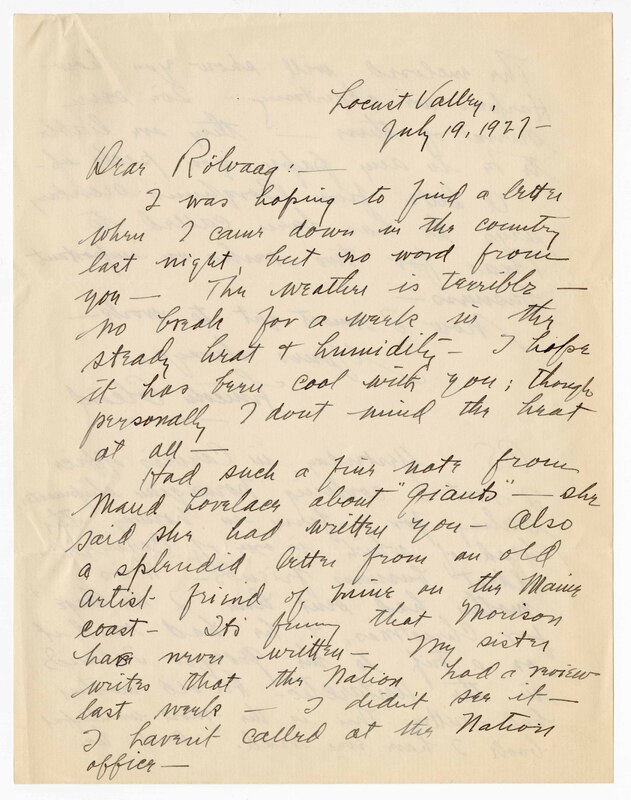 Locust Valley,
July 19, 1927-
Dear Rölvaag:-
I was hoping to find a letter
when I came down in the country
last night, but no word from
you — The weather is terrible —
no break for a week in the
steady heat & humidity - I hope
it has been cool with you; though
personally I dont mind the heat
at all —
Had such a fine note from
Maud Lovelace about "Giants" — she
said she had written you - Also
a splendid letter from an old
artist friend of mine on the Maine
coast - Its funny that Morison
has never written - My sister
writes that the Nation had a review
last week — I didn't see it -
I haven't called at the Nation
office —